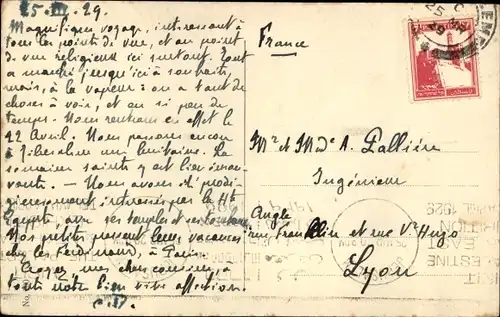 25. III. 29.
Magnifique voyage, intéressant à
tous les points de vue, et au point
de vue religieux ici surtout. Tout
a marché jusqu'ici à souhait,
mais, à la vapeur : on a tant de
choses à voir, et on si peu de
temps. Nous rentrons en effet le
22 Avril. Nous passons encore
à Jérusalem une huitaine. La
semaine sainte y est bien émou-
vante. — Nous avons été prodi-
gieusement intéressés par la Hte
Egypte, avec ses temples et ses tombeaux
Nos petites passent leurs vacances
chez les Ferdinand, à Paris.
Croyez, mes chers cousins, à
toute notre bien vive affection.
France
Mr et Mme A. Pallière
Ingénieur
Angle
rue Franklin et rue Vr Hugo
Lyon
25 MR
29
EAST
PALESTINE
No.